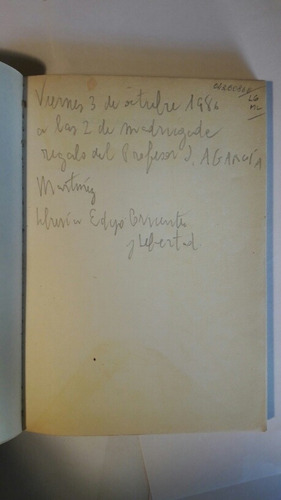 Viernes 3 de octubre 1986
a las 2 de madrugada
regalo del Profesor J. A GARCÍA
Martínez
librería Corrientes
y Libertad